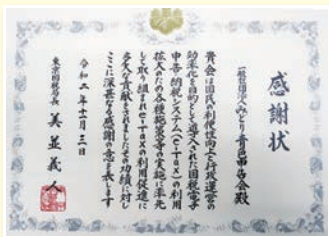 感謝状
一般社団法人みどり青色申告会殿
貴会は国民の利便性向上と行政運営の
効率化を目的として導入された国税電子
申告・納税システム(e-Tax)の利用
拡大のための各種施策等の実施に率先
して取り組まれe-Taxの利用促進に
多大な貢献をされましたその功績に対し
ここに深甚なる感謝の意を表します
令和二年十一月十一日
東京国税局長 美並義人